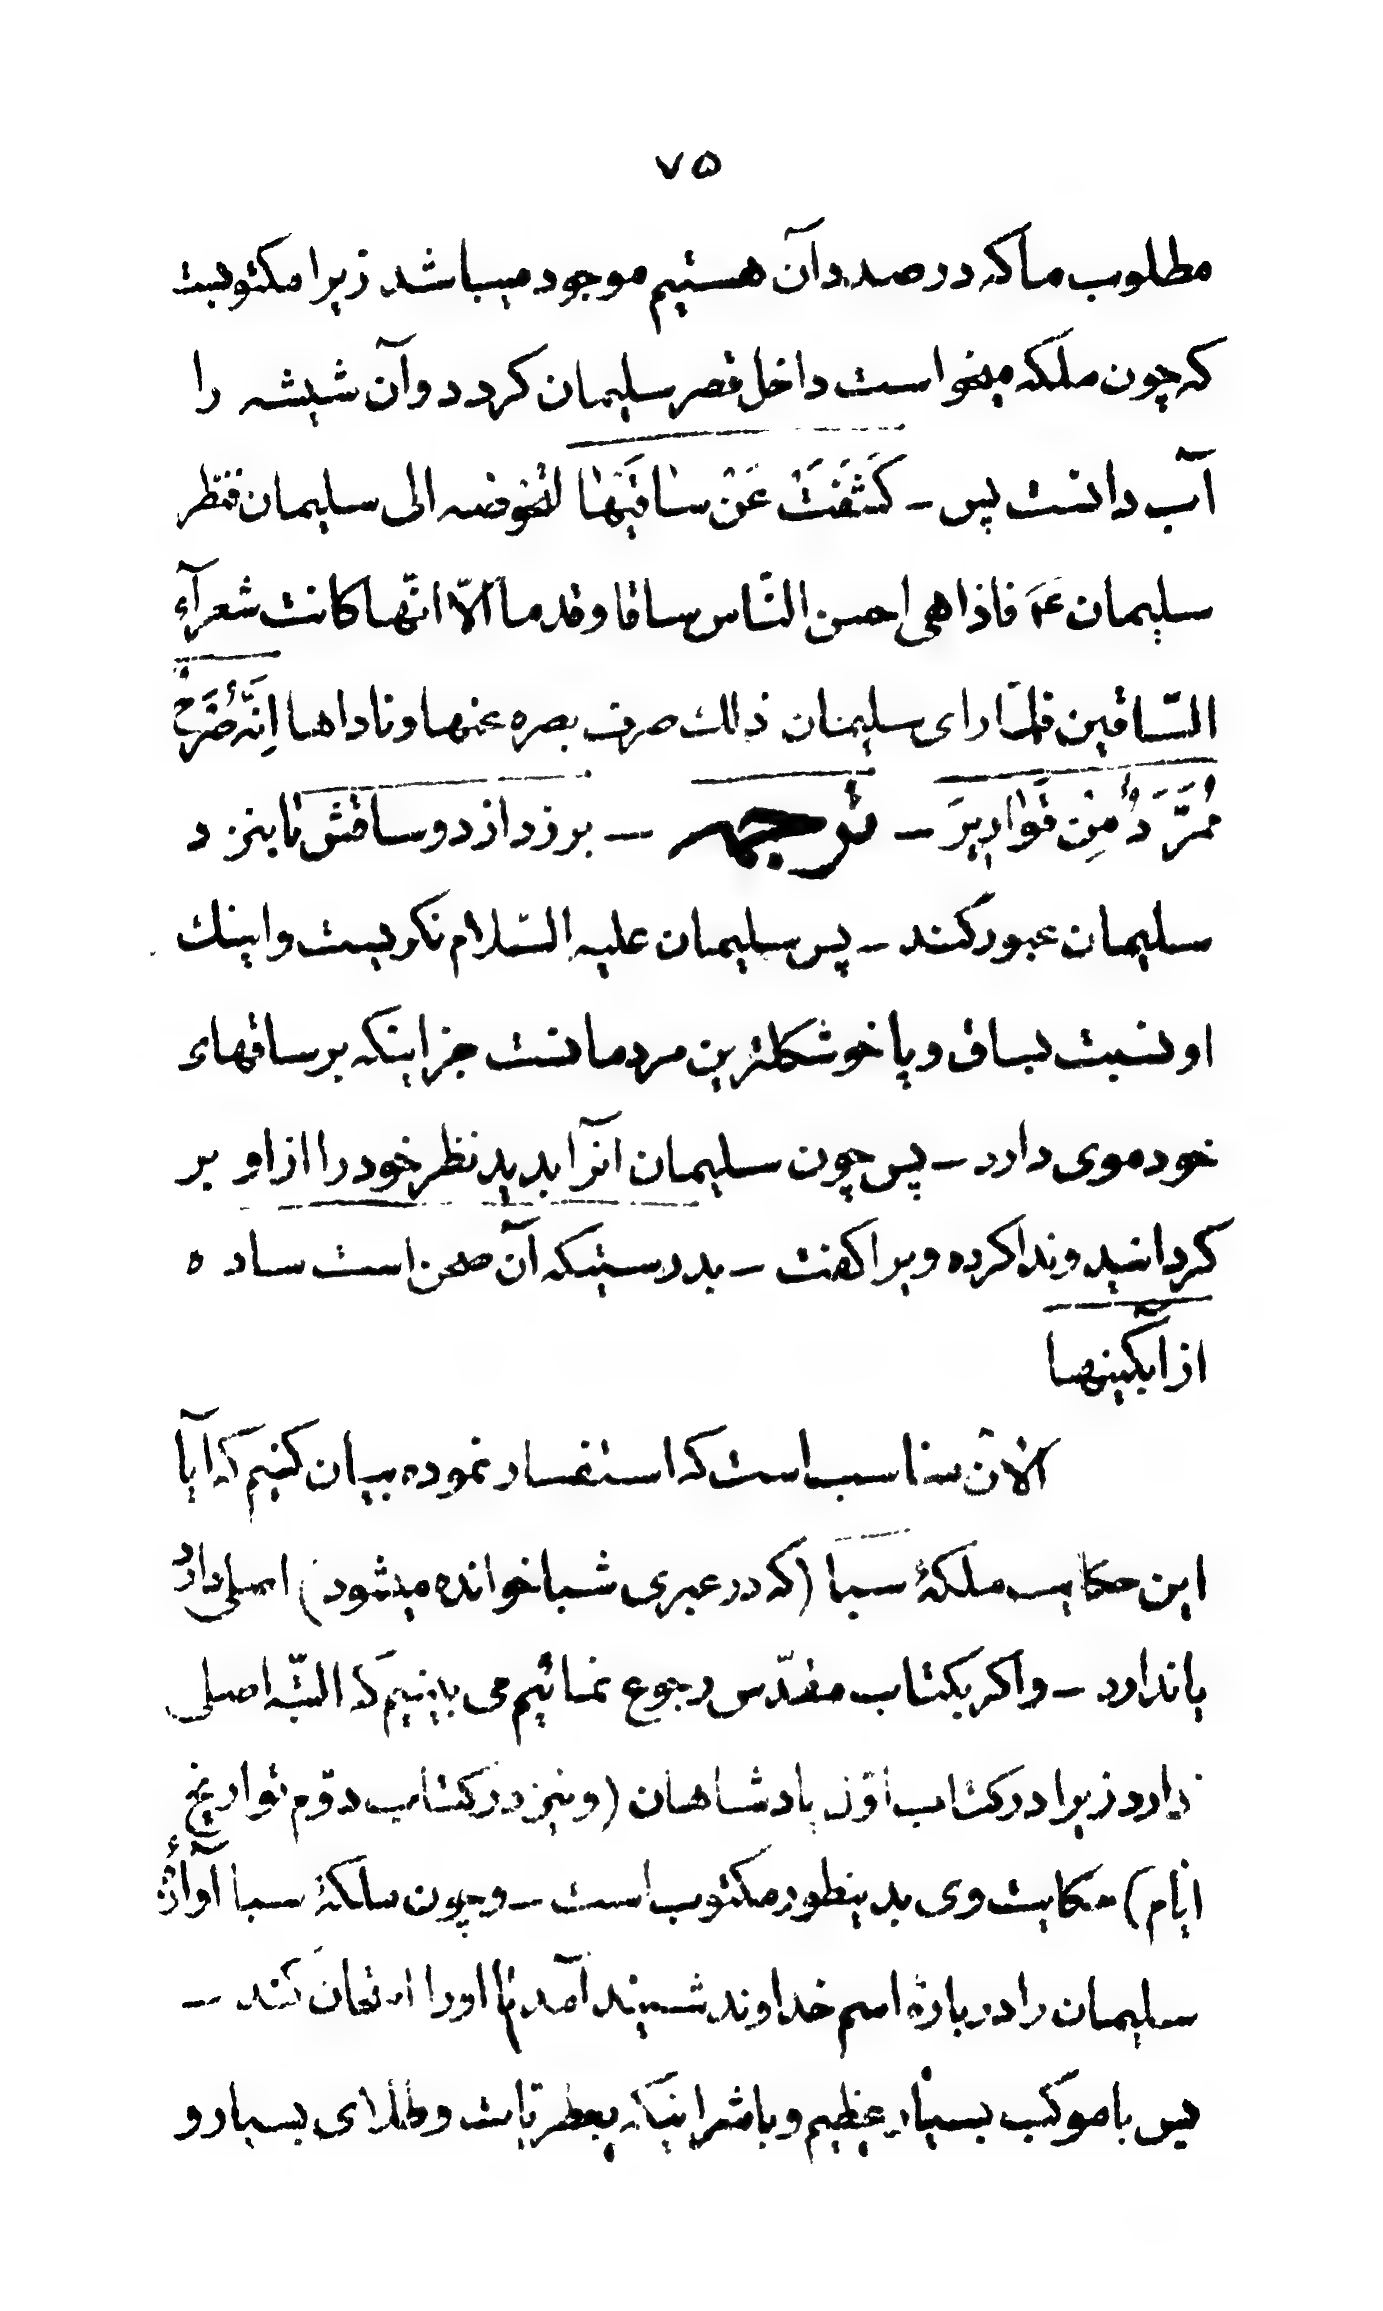 ۷۵
مطلوب ما که در صدد آن هستیم موجود میباشد زیرا مکتوبیت
که چون ملکه میخواست داخل قصر سلیمان کردد و آن شیشه را
آب دانست پس – كَشَفَتْ عَنْ سٰاقَيْهٰا لتخوضه الی سلیمان فنظر
سلیمان عَمَ فاذا هی احسن النّاس ساقا و قدما الّا انّها کانت شعرآء
السّاقین فلمّا رای سلیمان ذلك صرف بصره عنها و ناداها اِنَّهُ صَرْحٌ
مُمَرَّدٌ مِنْ قَوٰارِيرَ – ترجمه – برزد از دو ساقش تا بنزد
سلیمان عبور کند – پس سلیمان علیه السّلام نکریست و اینك
او نسبت بساق و پا خوشکلترین مردمانست جز اینکه بر ساقهای
خود موی دارد – پس چون سلیمان آنرا بدید نظر خود را از او بر
کردانید و ندا کرده ویرا کفت – بدرستیکه آن صحن است ساده
از آبکینها
الآن مناسب است که استفسار نموده بیان کنیم که آیا
این حکایت ملکهٔ سبا (که در عبری شبا خوانده میشود) اصلی دارد
یا ندارد – و اکر بکتاب مقدّس رجوع نمائیم می بینیم که البتّه اصلی
دارد زیرا در کتاب اوّل پادشاهان (و نیز در کتاب دوّم تواریخ
ایّام) حکایت وی بدینطور مکتوب است – و چون ملکهٔ سبا آوازهٔ
سلیمان را دربارهٔ اسم خداوند شنیند آمد تا او را امتحان کند –
پس با موکب بسیار عظیم و با شترانیکه بعطریات و طلای بسیار و